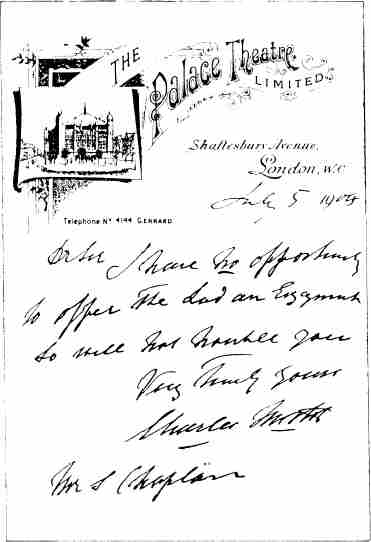 THE
Palace Theatre
LIMITED
Shaftesbury Avenue,
London, W.C
July 5 1904
Telephone No 4144 GERRARD
Dr Sir I have no opportunity
to offer the Lad an Engagement
so will not trouble you
Very Truly yours
Charles
Mr S Chaplain